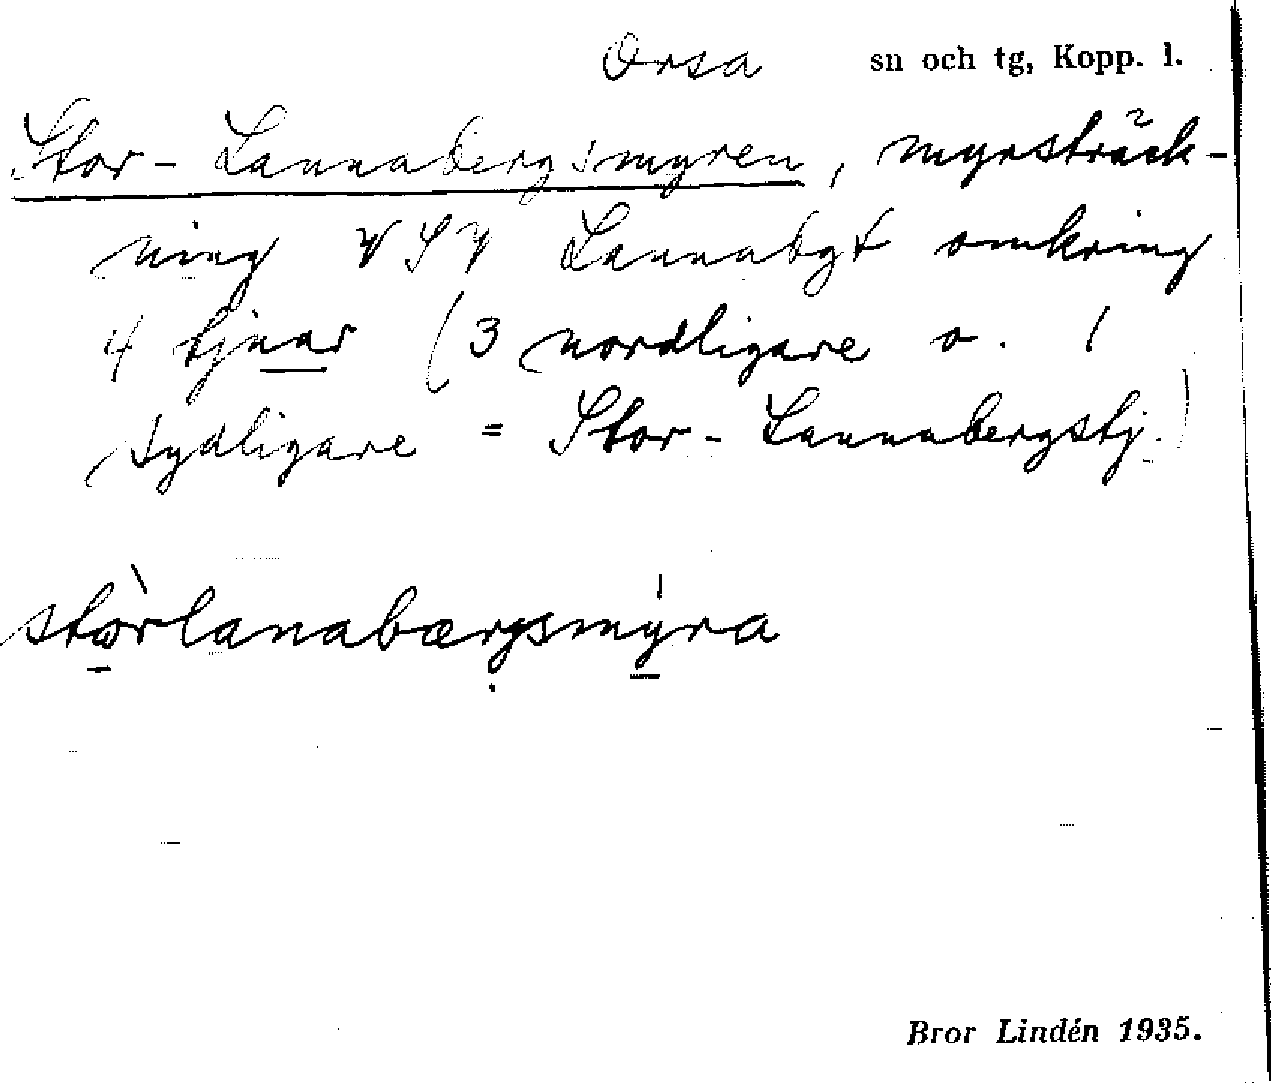 Orsa sn och tg, Kopp. l.
Stor-Lannabergsmyren, myrsträck-
ning VSV Lannabgt omkring
4 tjnar (3 nordligare o. 1
sydligare = Stor-Lannabergstj.)
stòrlanabærgsmýra
Bror Lindén 1935.